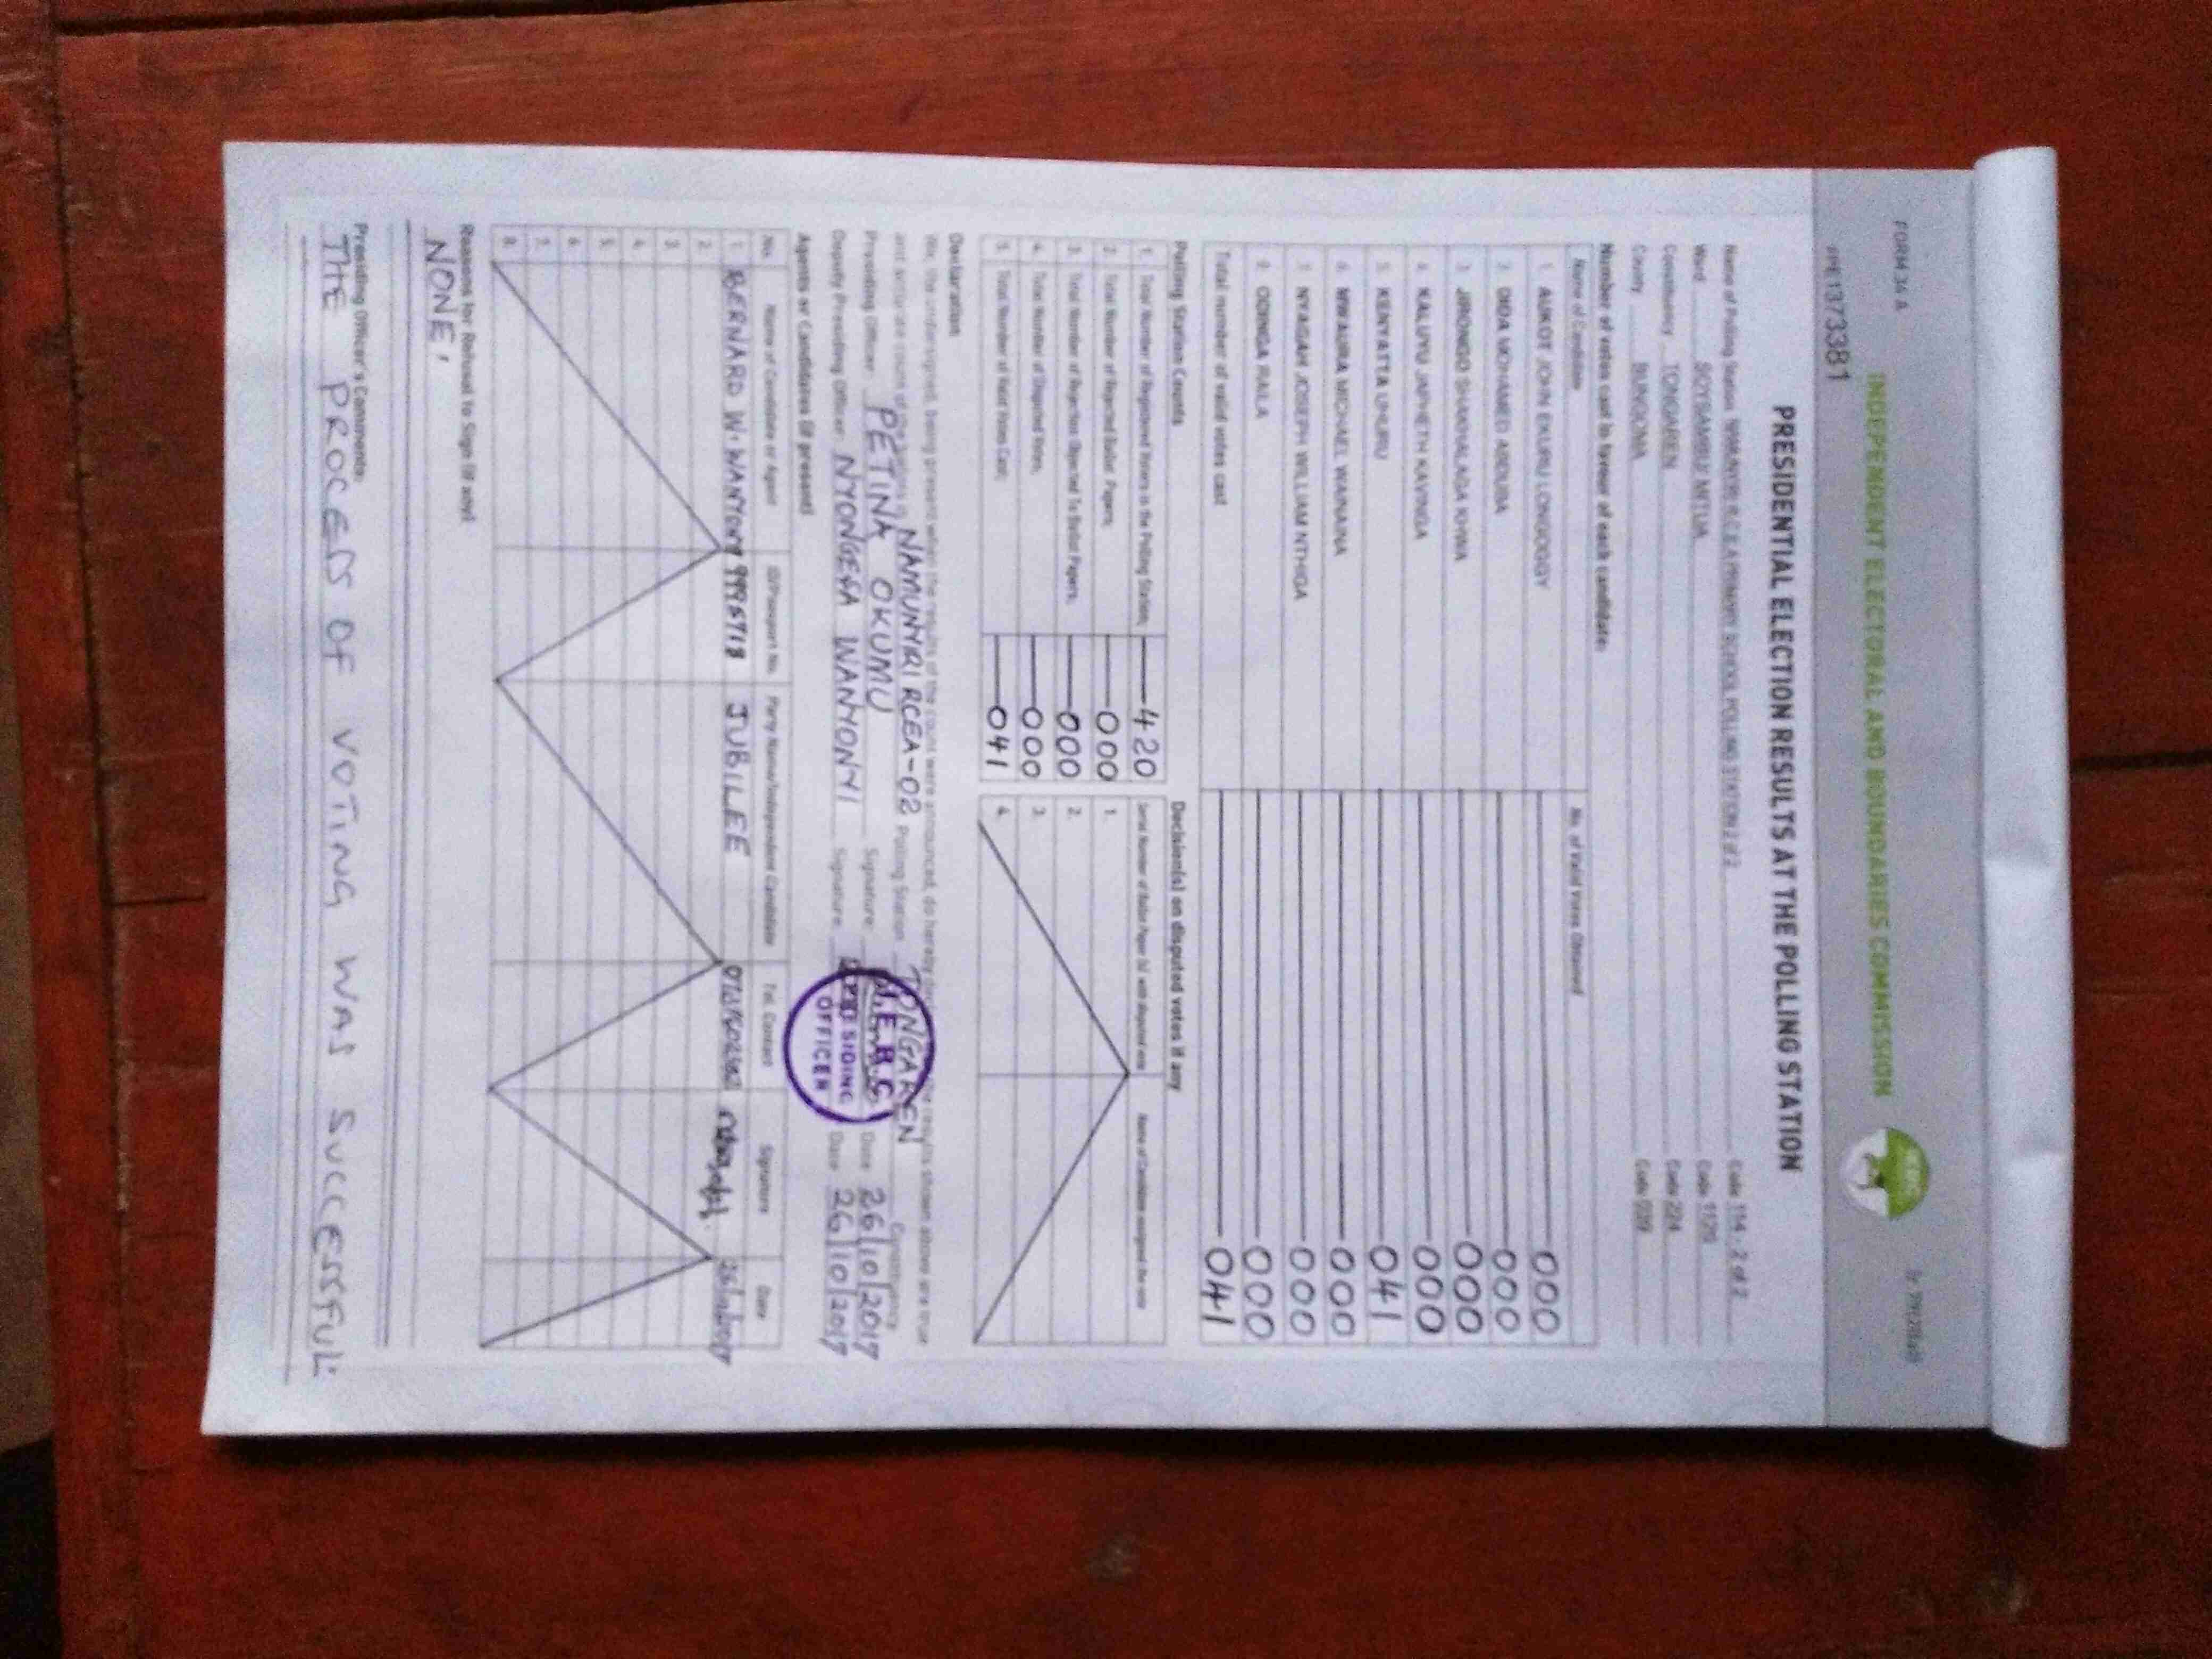 FORM 34 A
INDEPENDENT ELECTORAL AND BOUNDARIES COMMISSION
IEBC
PRE1373381
PRESIDENTIAL ELECTION RESULTS AT THE POLLING STATION
Name of Polling Station NAMUNYIRI R.C.E.A PRIMARY SCHOOL POLLING STATION 2 of 2 Code 114 - 2 of 2
Ward SOYSAMBU/ MITUA Code 1120
Constituency TONGAREN Code 224
County BUNGOMA Code 039
Number of votes cast in favour of each candidate:
Name of Candidate No. of Valid Votes Obtained
1. AUKOT JOHN EKURU LONGOGGY 000
2. DIDA MOHAMED ABDUBA 000
3. JIRONGO SHAKHALAGA KHWA 000
4. KALUYU JAPHETH KAVINGA 000
5. KENYATTA UHURU 041
6. MWAURA MICHAEL WAINAINA 000
7. NYAGAH JOSEPH WILLIAM NTHIGA 000
8. ODINGA RAILA 000
Total number of valid votes cast 041
Polling Station Counts
1. Total Number of Registered Voters in the Polling Station; 420
2. Total Number of Rejected Ballot Papers; 000
3. Total Number of Rejection Objected To Ballot Papers; 000
4. Total Number of Disputed Votes; 000
5. Total Number of Valid Votes Cast; 041
Decision(s) on disputed votes if any
Serial Number of Ballot Paper (s) with disputed vote Name of Candidate assigned the vote
1.
2.
3.
4.
Declaration
We, the undersigned, being present when the results of the count were announced, do hereby declare that the results shown above are true
and accurate count of the ballots in NAMUNYIRI RCEA-02 Polling Station TONGAREN Constituency
Presiding Officer PETINA OKUMU Signature Date 26/10/2017
Deputy Presiding Officer NYONGESA WANYONYI Signature Date 26/10/2017
I.E.B.C
PRESIDING
OFFICER
Agents or Candidates (if present)
No. Name of Candidate or Agent ID/Passport No. Party Name/Independent Candidate Tel. Contact Signature Date
1. BERNARD W. WANYONYI JUBILEE
2.
3.
4.
5.
6.
7.
8.
Reasons for Refusal to Sign (if any)
NONE,
Presiding Officer's Comments
THE PROCESS OF VOTING WAS SUCCESSFUL